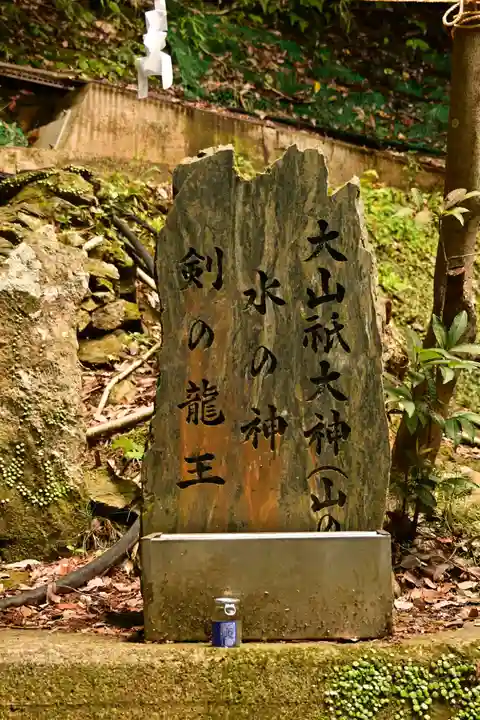 大山祇大神(山の
水の神
剣の龍王